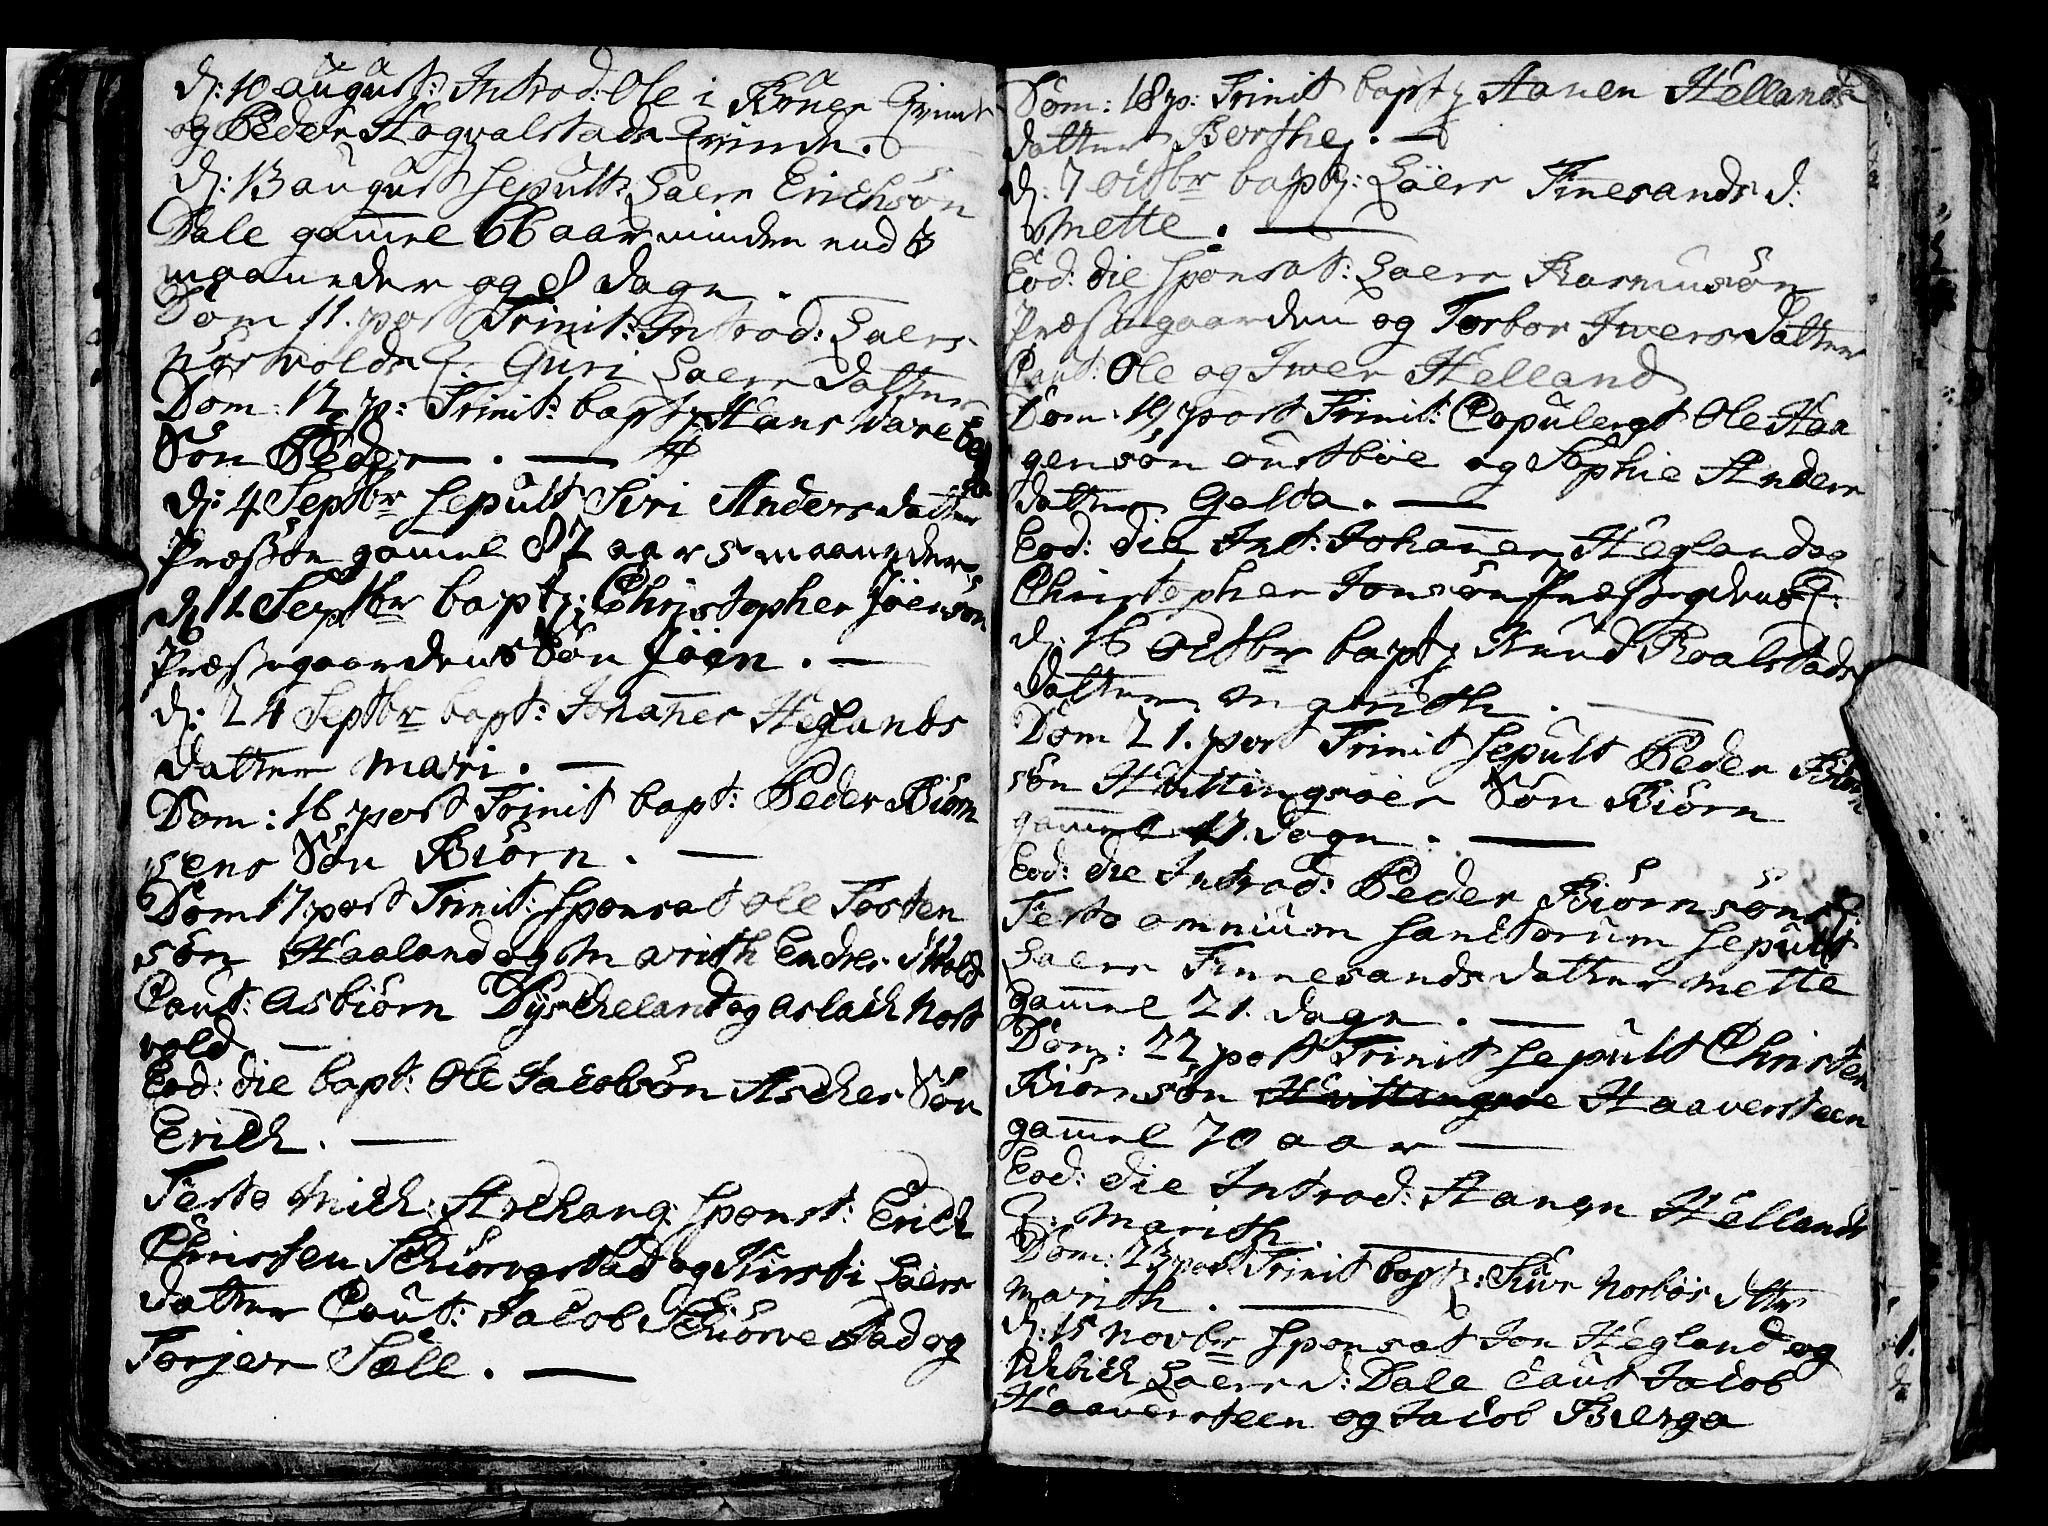 d: 10 august: Introd: Ole i Kroer Qvinde
og Peder Hogvalstads Qvinde. —
d: 13 august sepult: Laers Erichsøn
Dale gam̄el 66 aar minder end 3
maaneder og 8 dage.
Dom 11. post Trinit: Introd: Laers
Nortvolds Q. Guri Laers datter
Dom: 12 p: Trinit: bapt: Hans Vareberg
Søn Peder. —
d: 4 Septbr sepult Siri Anders datter
Præsten gam̄el 87 aar 5 maaneder
d 12 Septbr bapt: Christopher Joensøn
Præstegaardens Søn Joen. —
d: 24 Septbr bapt: Johan̄es Heglands
datter Mari. —
Dom: 16 post Trinit bapt: Peder Biørn
sens Søn Biørn. —
Dom 17 post Trinit: sponsat Ole Tosten
søn Haaland og Marith Endres d Wold
Caut: Asbiørn Dyscheland og Aslach Nort
vold —
Eod: die bapt: Ole Jacobsøn Ascher Søn
Erich. —
Festo Mich: Archang: sponst: Erich
Christen Schiørvestad og Kirsti Laers
datter Caut: Jacob Schiørvestad og
Torjer Sælle. —
Dom: 18 p: Trinit bapt Aanen Hellands
datter Berthe. —
d: 7 Octbr bapt: Laers Finesands d:
Mette. —
Eod: die sponsat: Laers Rasmusøn
Præstegaarden og Torbor Iwers datter
Caut: Ole og Iwer Helland
Dom: 19 post Trinit: Copulergt Ole Haa
gensøn Austbøe og Sophie Anders
datter Galta. —
Eod: die Int: Johan̄es Hegland og
Christopher Jonsøn Præstegdens Q:
d: 16 Octbr bapt Knud Roalstads
datter Marith. —
Dom 21. post Trinit sepult Peder Biørn
søn Huittingsøes Søn Biørn
gam̄el 17. dage. —
Eod: die Introd: Peder Biørnsøns Q:
Festo omnium sanctorum sepult
Laers Finnesands datter Mette
gam̄el 21. dage. —
Dom: 22 post Trinit sepult Christen
Biørnsøn Huittingsøe Haaversteen
gam̄el 70 aar —
Eod: die Introd: Aanen Hellands
Q: Marith. —
Dom: 23 post Trinit bapt: Siur Norbøs dtter
Marith. —
d: 15 Novbr sponsat Jon Hegland og
Laers d: Dale Caut Jacob
Haaversteen og Jacob Bierga